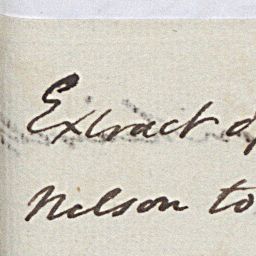 Extract of
Nelson to